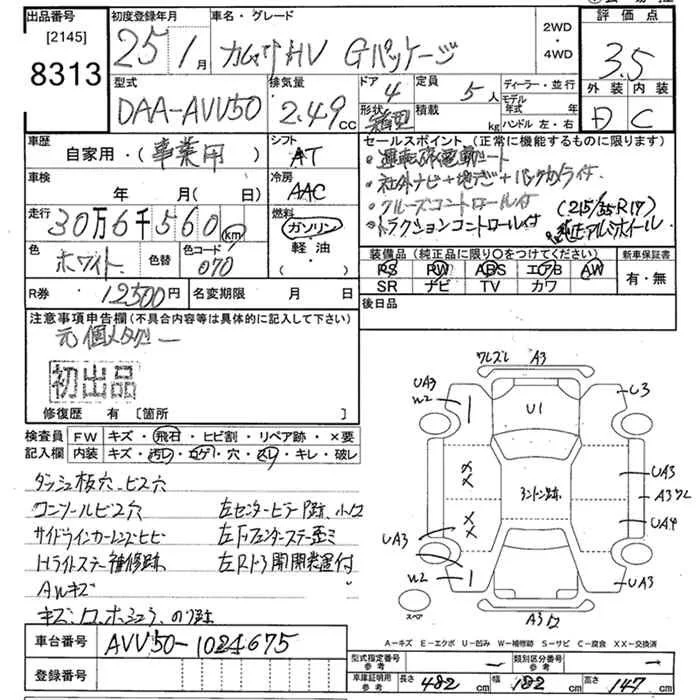 出品番号 初度登録年月 車名・グレード 2WD・4WD 評価点
[2145] 25年1月 カムリHV Gパッケージ 3.5
8313
型式 排気量 ドア 定員 ディーラー・並行 外装 内装
DAA-AVV50 2.49cc 4 5人 モデル年式 年 D C
形状 積載 kg ハンドル 左・右
車歴 自家用・事業用 シフト AT
セールスポイント (正常に機能するものに限ります)
・運転席電動シート
・社外ナビ+地デジ+バックカメラ付
・クルーズコントロール付 (215/55R17)
・トラクションコントロール付 純正アルミホイール
車検 年 月(日) 冷房 AAC
走行 30万6千560km 燃料 ガソリン・軽油・( )
色 ホワイト 色替 色コード 070
装備品 (純正品に限り〇をつけてください) 新車保証書
PS PW ABS エアB AW 有・無
SR ナビ TV カワ
R券 12500円 名変期限 月 日 後日品
注意事項申告欄 (不具合内容等は具体的に記入して下さい)
元個人タクシー
初出品
修復歴 有 [箇所 ]
検査員記入欄 FW キズ・飛石・ヒビ割・リペア跡・×要
内装 キズ・汚れ・コゲ・穴・スレ・キレ・破レ
ダッシュ板穴、ビス穴
コンソールビス穴 左センターピラーP跡、小凹
サイドウインカーレンズヒビ 左Fフェンダーステー歪ミ
Hライトステー補修跡 左Rドア開閉装置付
AWキズ
ワレズレ A3
UA3 W2 U1 U3
UA3
アンテナ跡 A3ワレ
UA4
UA3
W2 UA3
スペア
A3凹
A=キズ E=エクボ U=凹み W=補修跡 S=サビ C=腐食 XX=交換済
車台番号 AVV50-1024675
登録番号
型式指定番号 参考 類別区分番号 参考
車庫証明用 参考 長さ 482cm 幅 182cm 高さ 147cm